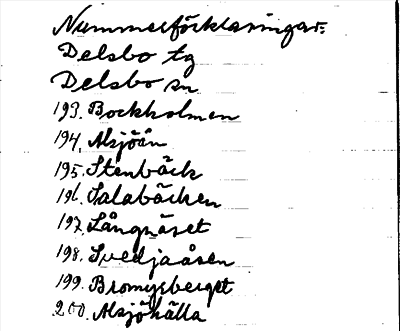 Nummerförklaringar:
Delsbo tg
Delsbo sn
193. Bockholmen
194. Alsjöån
195. Stenbäck
196. Salabäcken
197. Långnäset
198. Svedjaåsen
199. Bromysberget
200. Alsjöhälla